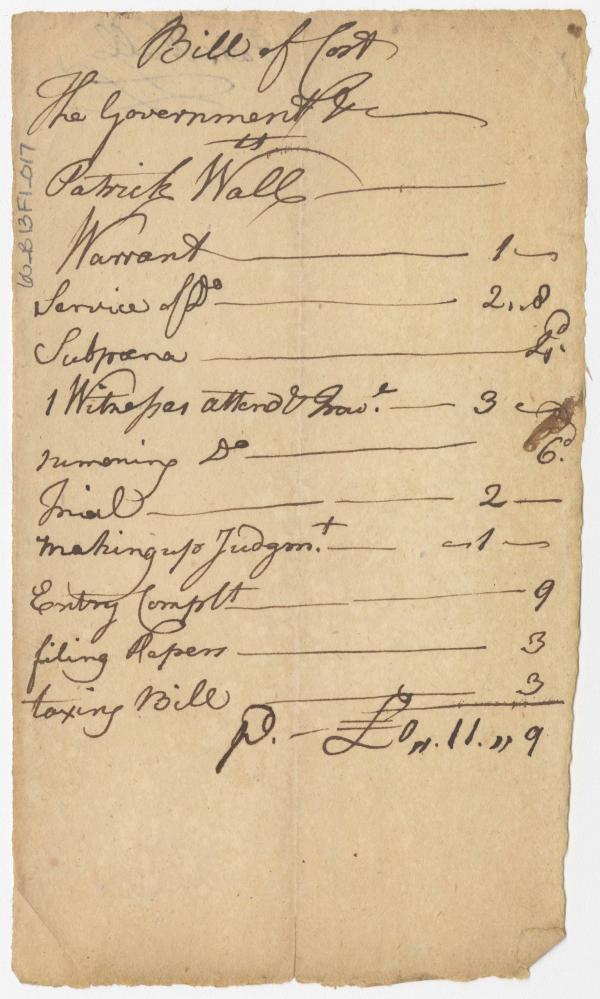 Bill of Cost
The Government &c
vs
Patrick Wall
Warrant 1 —
Service of Do 2 ,, 8
Subpœna 4d.
1 Witness attend & Trav.l 3 —
sumoning Do 6d.
Trial 2 —
making up Judgm.t 1 —
Entry Complt 9
filing Papers 3
taxing Bill 3
pd. — £0 ,, 11 ,, 9
60_B13F1_017